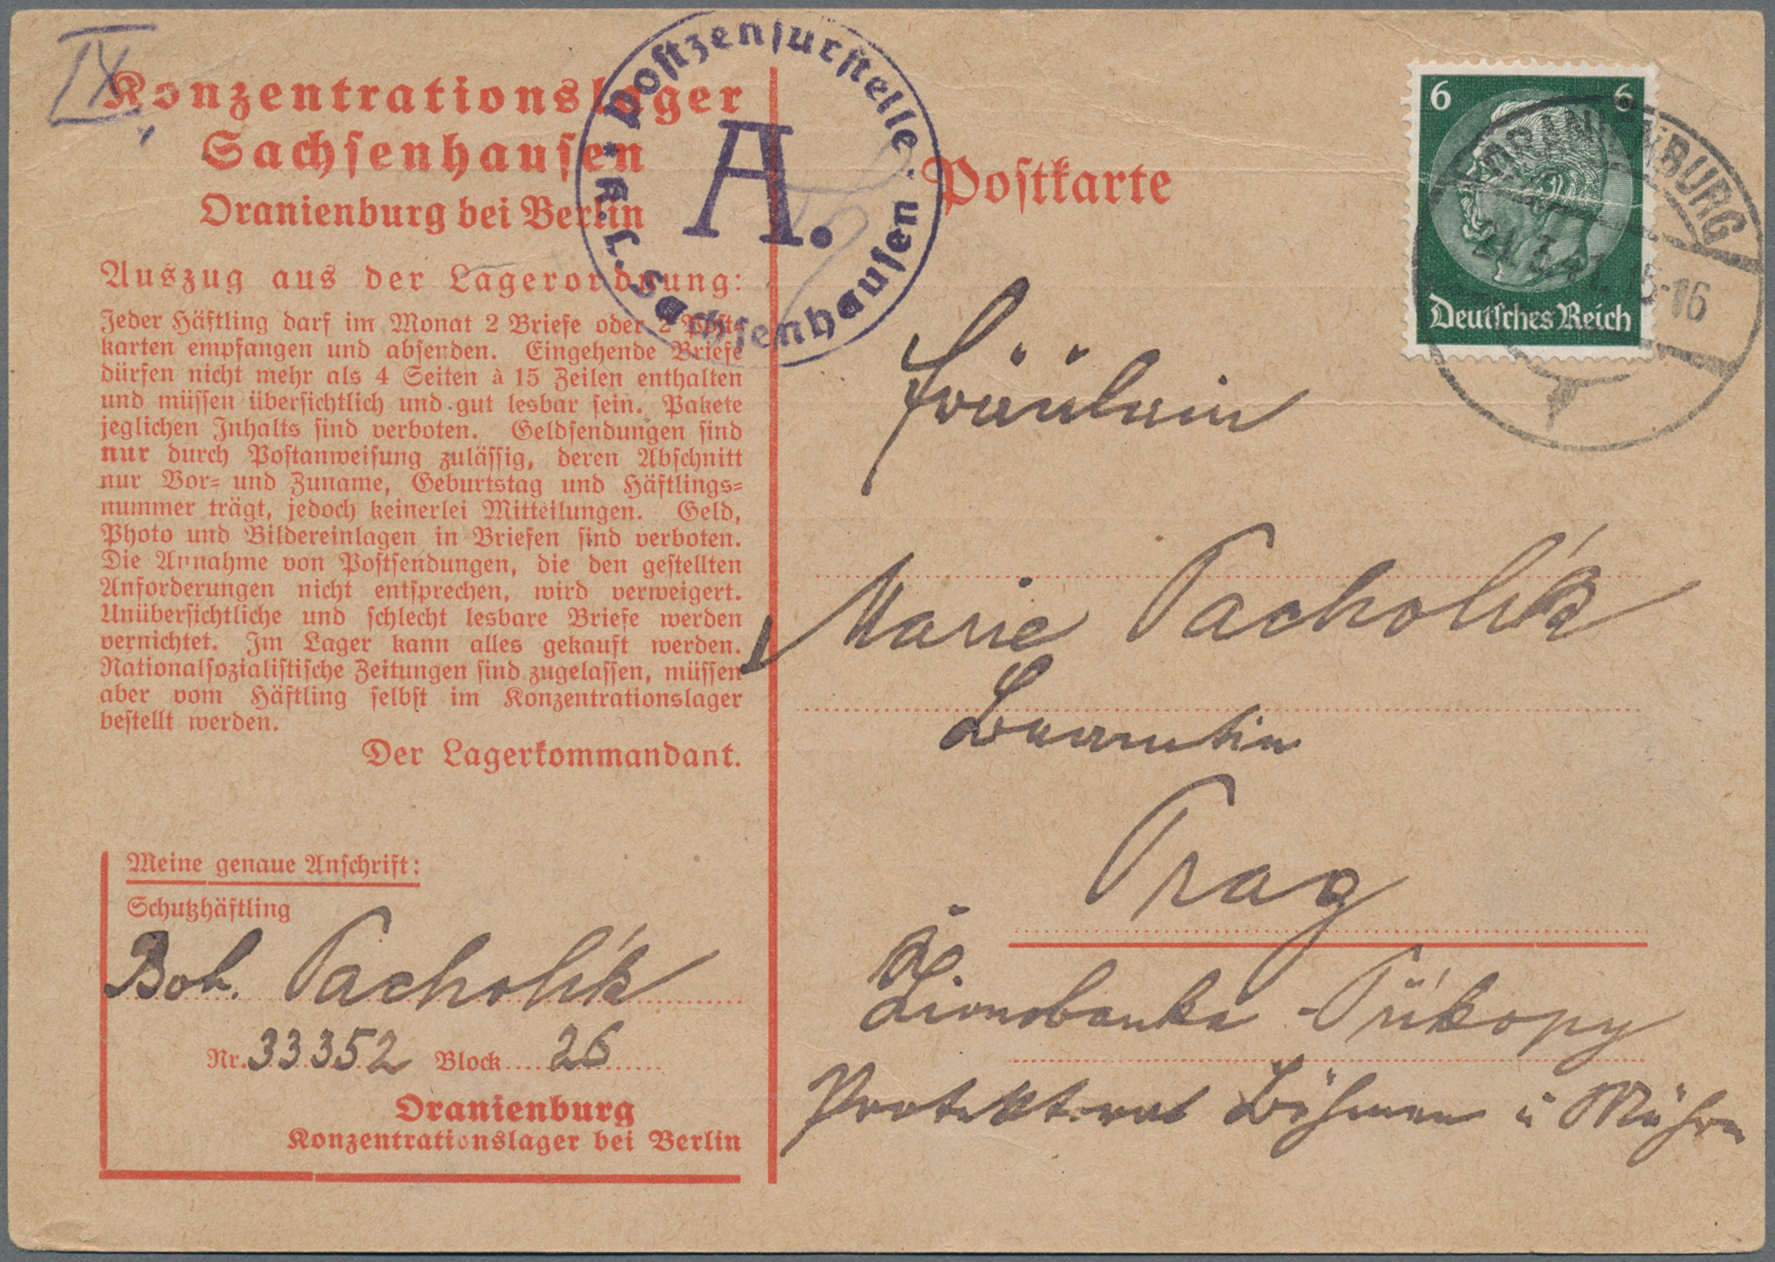 IX,
Konzentrationslager
Sachsenhausen
Oranienburg bei Berlin
Auszug aus der Lagerordnung:
Jeder Häftling darf im Monat 2 Briefe oder 2 Post-
karten empfangen und absenden. Eingehende Briefe
dürfen nicht mehr als 4 Seiten à 15 Zeilen enthalten
und müssen übersichtlich und gut lesbar sein. Pakete
jeglichen Inhalts sind verboten. Geldsendungen sind
nur durch Postanweisung zulässig, deren Abschnitt
nur Vor- und Zuname, Geburtstag und Häftlings-
nummer trägt, jedoch keinerlei Mitteilungen. Geld,
Photo und Bildereinlagen in Briefen sind verboten.
Die Annahme von Postsendungen, die den gestellten
Anforderungen nicht entsprechen, wird verweigert.
Unübersichtliche und schlecht lesbare Briefe werden
vernichtet. Im Lager kann alles gekauft werden.
Nationalsozialistische Zeitungen sind zugelassen, müssen
aber vom Häftling selbst im Konzentrationslager
bestellt werden.
Der Lagerkommandant.
Meine genaue Anschrift:
Schutzhäftling
Boh. Pacholík
Nr. 33352 Block 26
Oranienburg
Konzentrationslager bei Berlin
Postzensurstelle
A.
K.L. Sachsenhausen
Postkarte
6 6
Deutsches Reich
ORANIENBURG
15-16
Fräulein
Marie Pacholík
Beamtin
Prag
Živnobanka - Příkopy
Protektorat Böhmen u Mähren